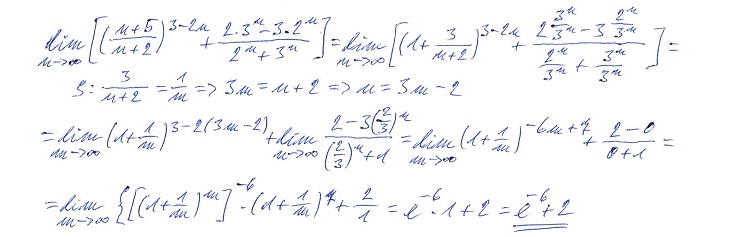 lim n→∞ [((n+5)/(n+2))^(3-2n) + (2·3^n - 3·2^n)/(2^n + 3^n)] = lim n→∞ [(1 + 3/(n+2))^(3-2n) + (2 3^n/3^n - 3 2^n/3^n)/(2^n/3^n + 3^n/3^n)] =
S: 3/(n+2) = 1/m => 3m = n+2 => n = 3m-2
= lim m→∞ (1 + 1/m)^(3-2(3m-2)) + lim n→∞ (2 - 3(2/3)^n)/((2/3)^n + 1) = lim m→∞ (1 + 1/m)^(-6m+7) + (2-0)/(0+1) =
= lim m→∞ {[(1 + 1/m)^m]^(-6) · (1 + 1/m)^7 + 2/1 = e^(-6) · 1 + 2 = e^(-6) + 2